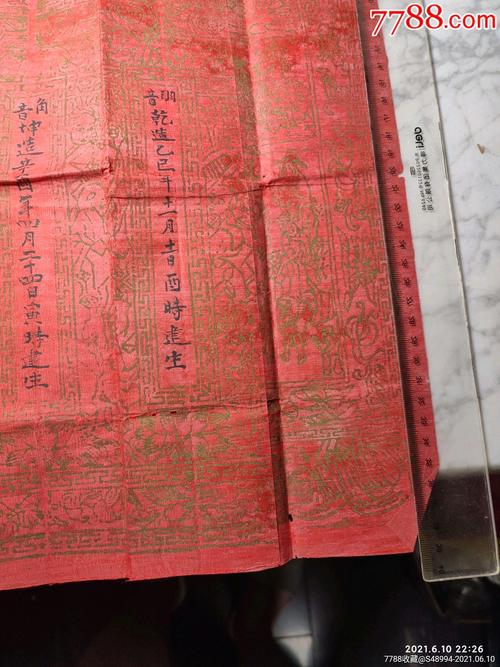 7788.com
羽音乾造乙巳年十一月十一日酉時建生
角音坤造辛酉年四月二十四日寅時建生
deli
2021.6.10 22:26
7788收藏@S48994-2021.06.10